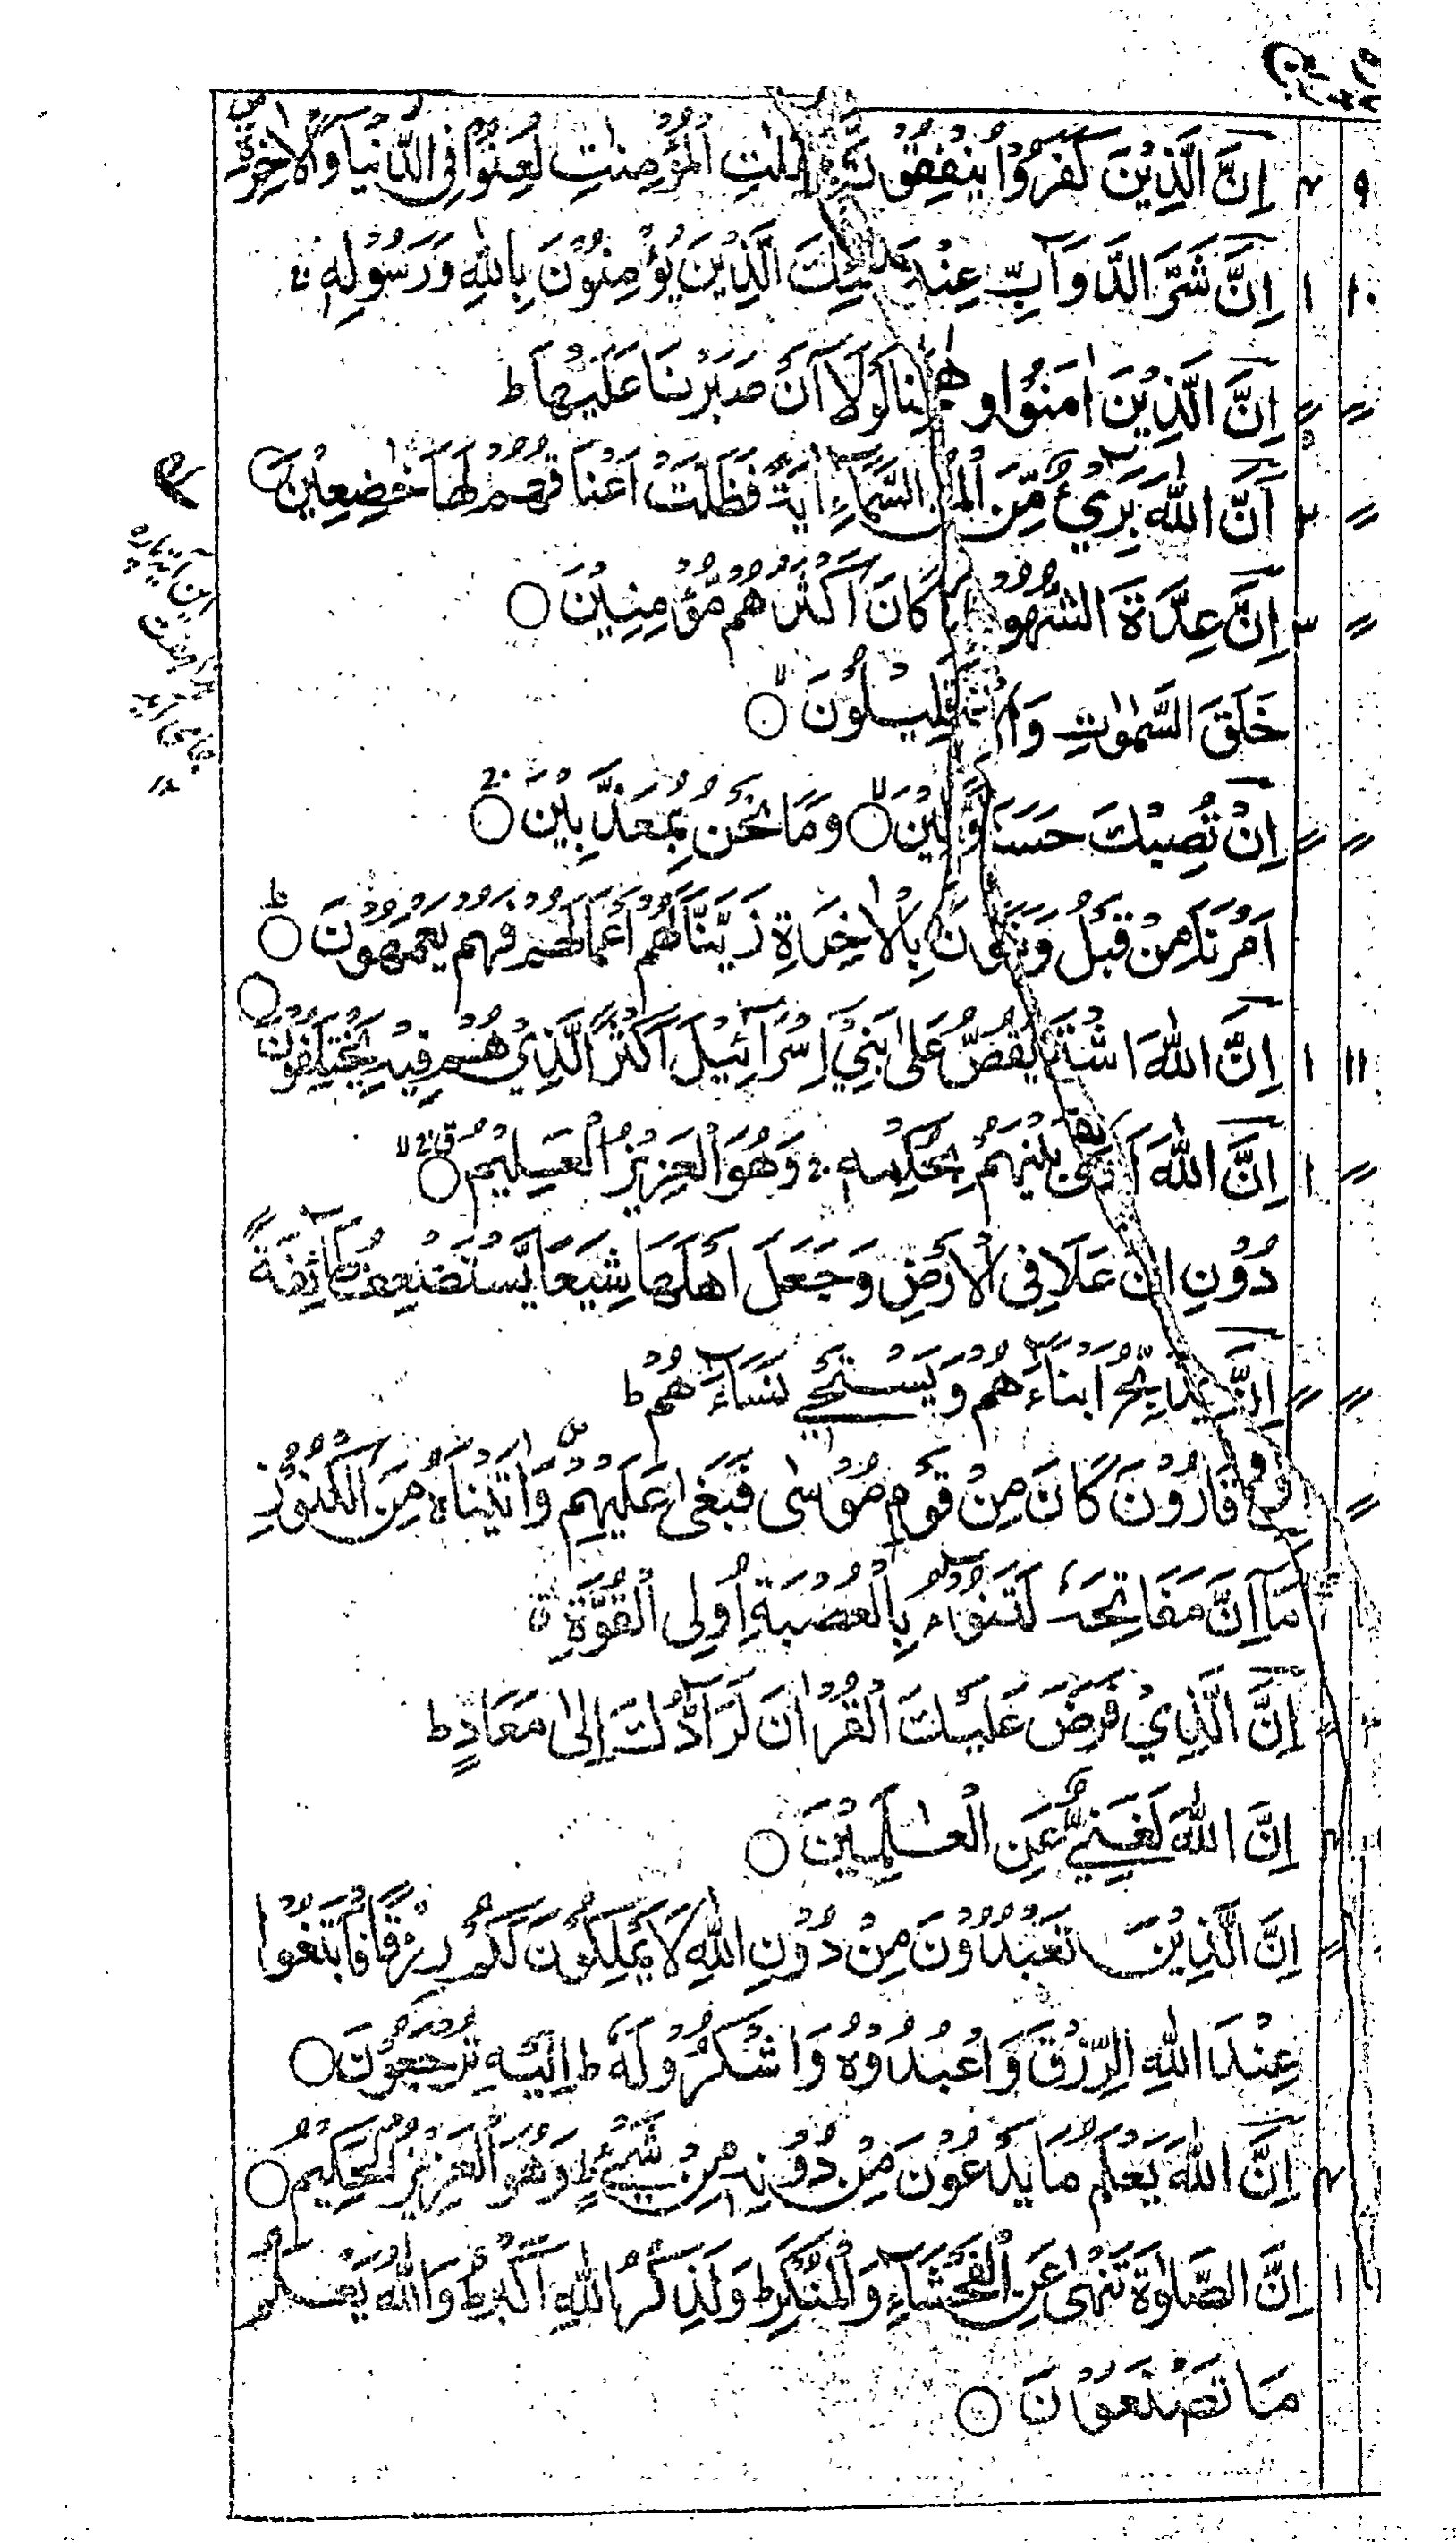 اِنَّ الَّذِيْنَ كَفَرُوْا يُنْفِقُوْنَ لٰتِ الْمُؤْمِنٰتِ لُعِنُوْا فِى الدُّنْيَا وَالْاٰخِرَةِ ص
اِنَّ شَرَّ الدَّوَآبِّ عِنْدَ ئِكَ الَّذِيْنَ يُؤْمِنُوْنَ بِاللّٰهِ وَرَسُوْلِهٖ ج
اِنَّ الَّذِيْنَ اٰمَنُوْا و هٰ نَا لَوْلَآ اَنْ صَبَرْنَا عَلَيْهَا ط
اَنَّ اللّٰهَ بَرِيْٓءٌ مِّنَ الْمُ السَّمَآءِ اٰيَةً فَظَلَّتْ اَعْنَاقُهُمْ لَهَا خٰضِعِيْنَ
اِنَّ عِدَّةَ الشُّهُوْ ا كَانَ اَكْثَرُهُمْ مُّؤْمِنِيْنَ ○
خَلَقَ السَّمٰوٰتِ وَا قَلِيْلُوْنَ ○ لا
اِنْ تُصِبْكَ حَسَنَ وَّلِيْنَ ○ لا وَمَا نَحْنُ بِمُعَذَّبِيْنَ ○ ج
اَمْرَنَا مِنْ قَبْلُ وَيَ نُوْنَ بِالْاٰخِرَةِ زَيَّنَّا لَهُمْ اَعْمَالَهُمْ فَهُمْ يَعْمَهُوْنَ ○ ط
اِنَّ اللّٰهَ اشْتَ يَقُصُّ عَلٰى بَنِيْٓ اِسْرَآئِيْلَ اَكْثَرَ الَّذِيْ هُمْ فِيْهِ يَخْتَلِفُوْنَ ○
اِنَّ اللّٰهَ يَقْضِىْ بَيْنَهُمْ بِحُكْمِهٖ ج وَهُوَ الْعَزِيْزُ الْعَلِيْمُ ○
دُوْنِ ا نَ عَلَا فِى الْاَرْضِ وَجَعَلَ اَهْلَهَا شِيَعًا يَّسْتَضْعِفُ طَآئِفَةً
يُذَبِّحُ اَبْنَآءَهُمْ وَيَسْتَحْىٖ نِسَآءَهُمْ ط
قَارُوْنَ كَانَ مِنْ قَوْمِ مُوْسٰى فَبَغٰى عَلَيْهِمْ ص وَاٰتَيْنٰهُ مِنَ الْكُنُوْزِ
مَآ اِنَّ مَفَاتِحَهٗ لَتَنُوْٓاُ بِالْعُصْبَةِ اُولِى الْقُوَّةِ ق
اِنَّ الَّذِيْ فَرَضَ عَلَيْكَ الْقُرْاٰنَ لَرَآدُّكَ اِلٰى مَعَادٍ ط
اِنَّ اللّٰهَ لَغَنِيٌّ عَنِ الْعٰلَمِيْنَ ○
اِنَّ الَّذِيْنَ تَعْبُدُوْنَ مِنْ دُوْنِ اللّٰهِ لَا يَمْلِكُوْنَ لَكُمْ رِزْقًا فَابْتَغُوْا
عِنْدَ اللّٰهِ الرِّزْقَ وَاعْبُدُوْهُ وَاشْكُرُوْا لَهٗ ط اِلَيْهِ تُرْجَعُوْنَ ○
اِنَّ اللّٰهَ يَعْلَمُ مَا يَدْعُوْنَ مِنْ دُوْنِهٖ مِنْ شَيْءٍ ط وَهُوَ الْعَزِيْزُ الْحَكِيْمُ ○
اِنَّ الصَّلٰوةَ تَنْهٰى عَنِ الْفَحْشَآءِ وَالْمُنْكَرِ ط وَلَذِكْرُ اللّٰهِ اَكْبَرُ ط وَاللّٰهُ يَعْلَمُ
مَا تَصْنَعُوْنَ ○